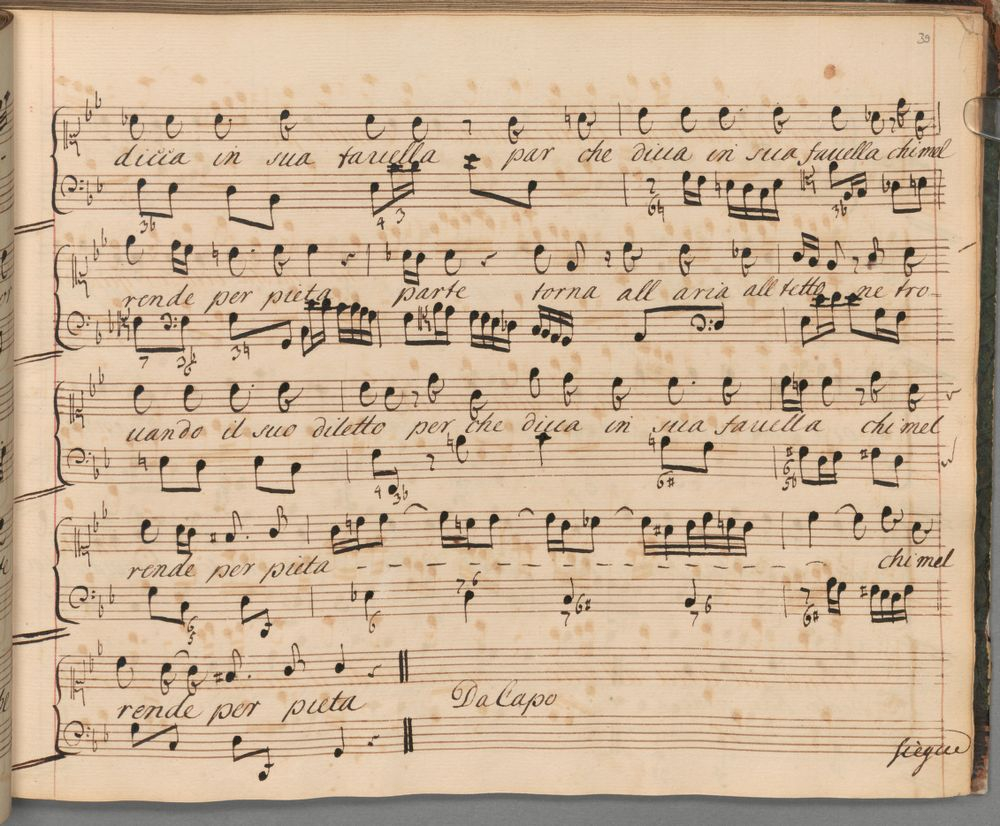 39
dicca in sua fauella par che dicca in sua fauella chi mel
rende per pieta parte torna all aria all tetto ne tro-
uando il suo diletto per che dicca in sua fauella chi mel
rende per pieta - - - - - - - - - - chi mel
rende per pieta Da Capo
siegue